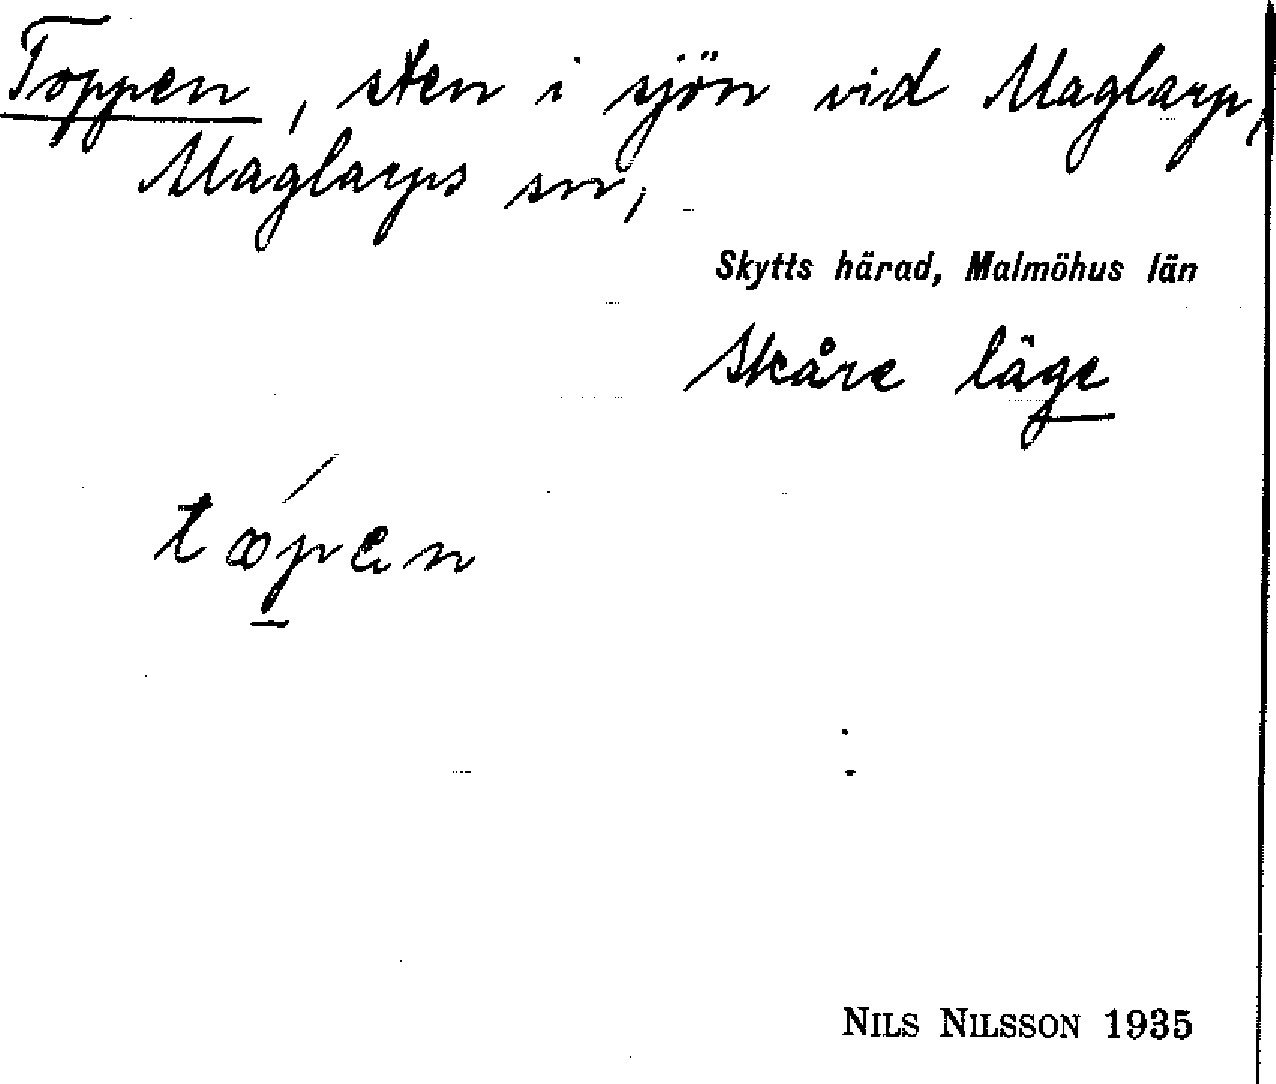 Toppen, sten i sjön vid Maglarp,
Maglarps sn,
Skytts härad, Malmöhus län
Skåre läge
NILS NILSSON 1935